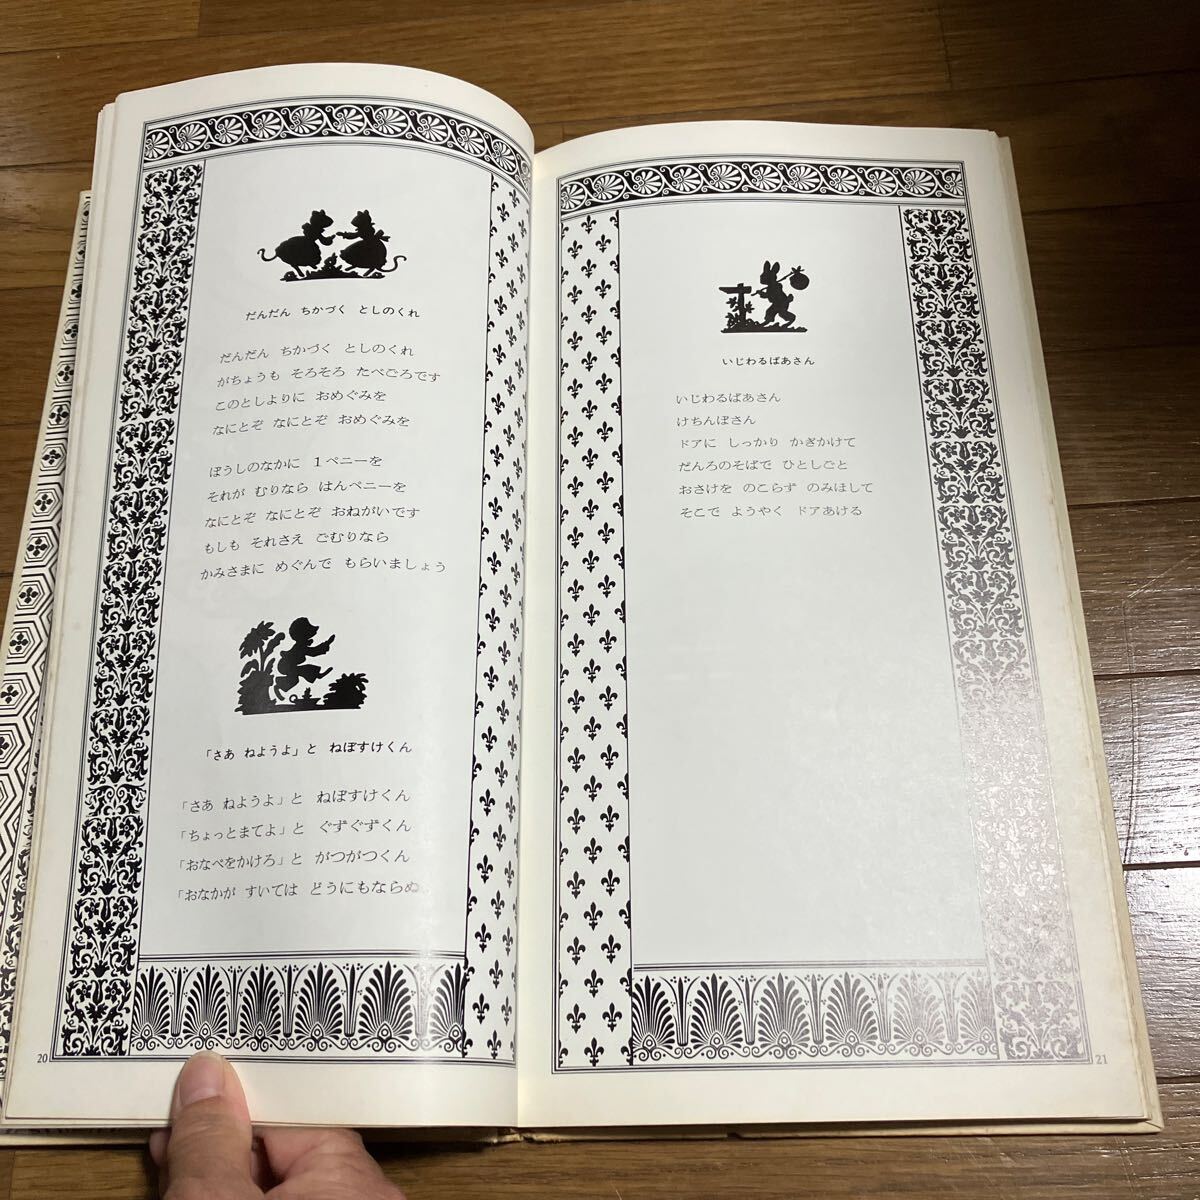 だんだん ちかづく としのくれ
だんだん ちかづく としのくれ
がちょうも そろそろ たべごろです
このとしよりに おめぐみを
なにとぞ なにとぞ おめぐみを
ぼうしのなかに 1ペニーを
それが むりなら はんペニーを
なにとぞ なにとぞ おねがいです
もしも それさえ ごむりなら
かみさまに めぐんで もらいましょう
「さあ ねようよ」と ねぼすけくん
「さあ ねようよ」と ねぼすけくん
「ちょっとまてよ」と ぐずぐずくん
「おなべをかけろ」と がつがつくん
「おなかが すいては どうにもならぬ」
20
いじわるばあさん
いじわるばあさん
けちんぼさん
ドアに しっかり かぎかけて
だんろのそばで ひとしごと
おさけを のこらず のみほして
そこで ようやく ドアあける
21